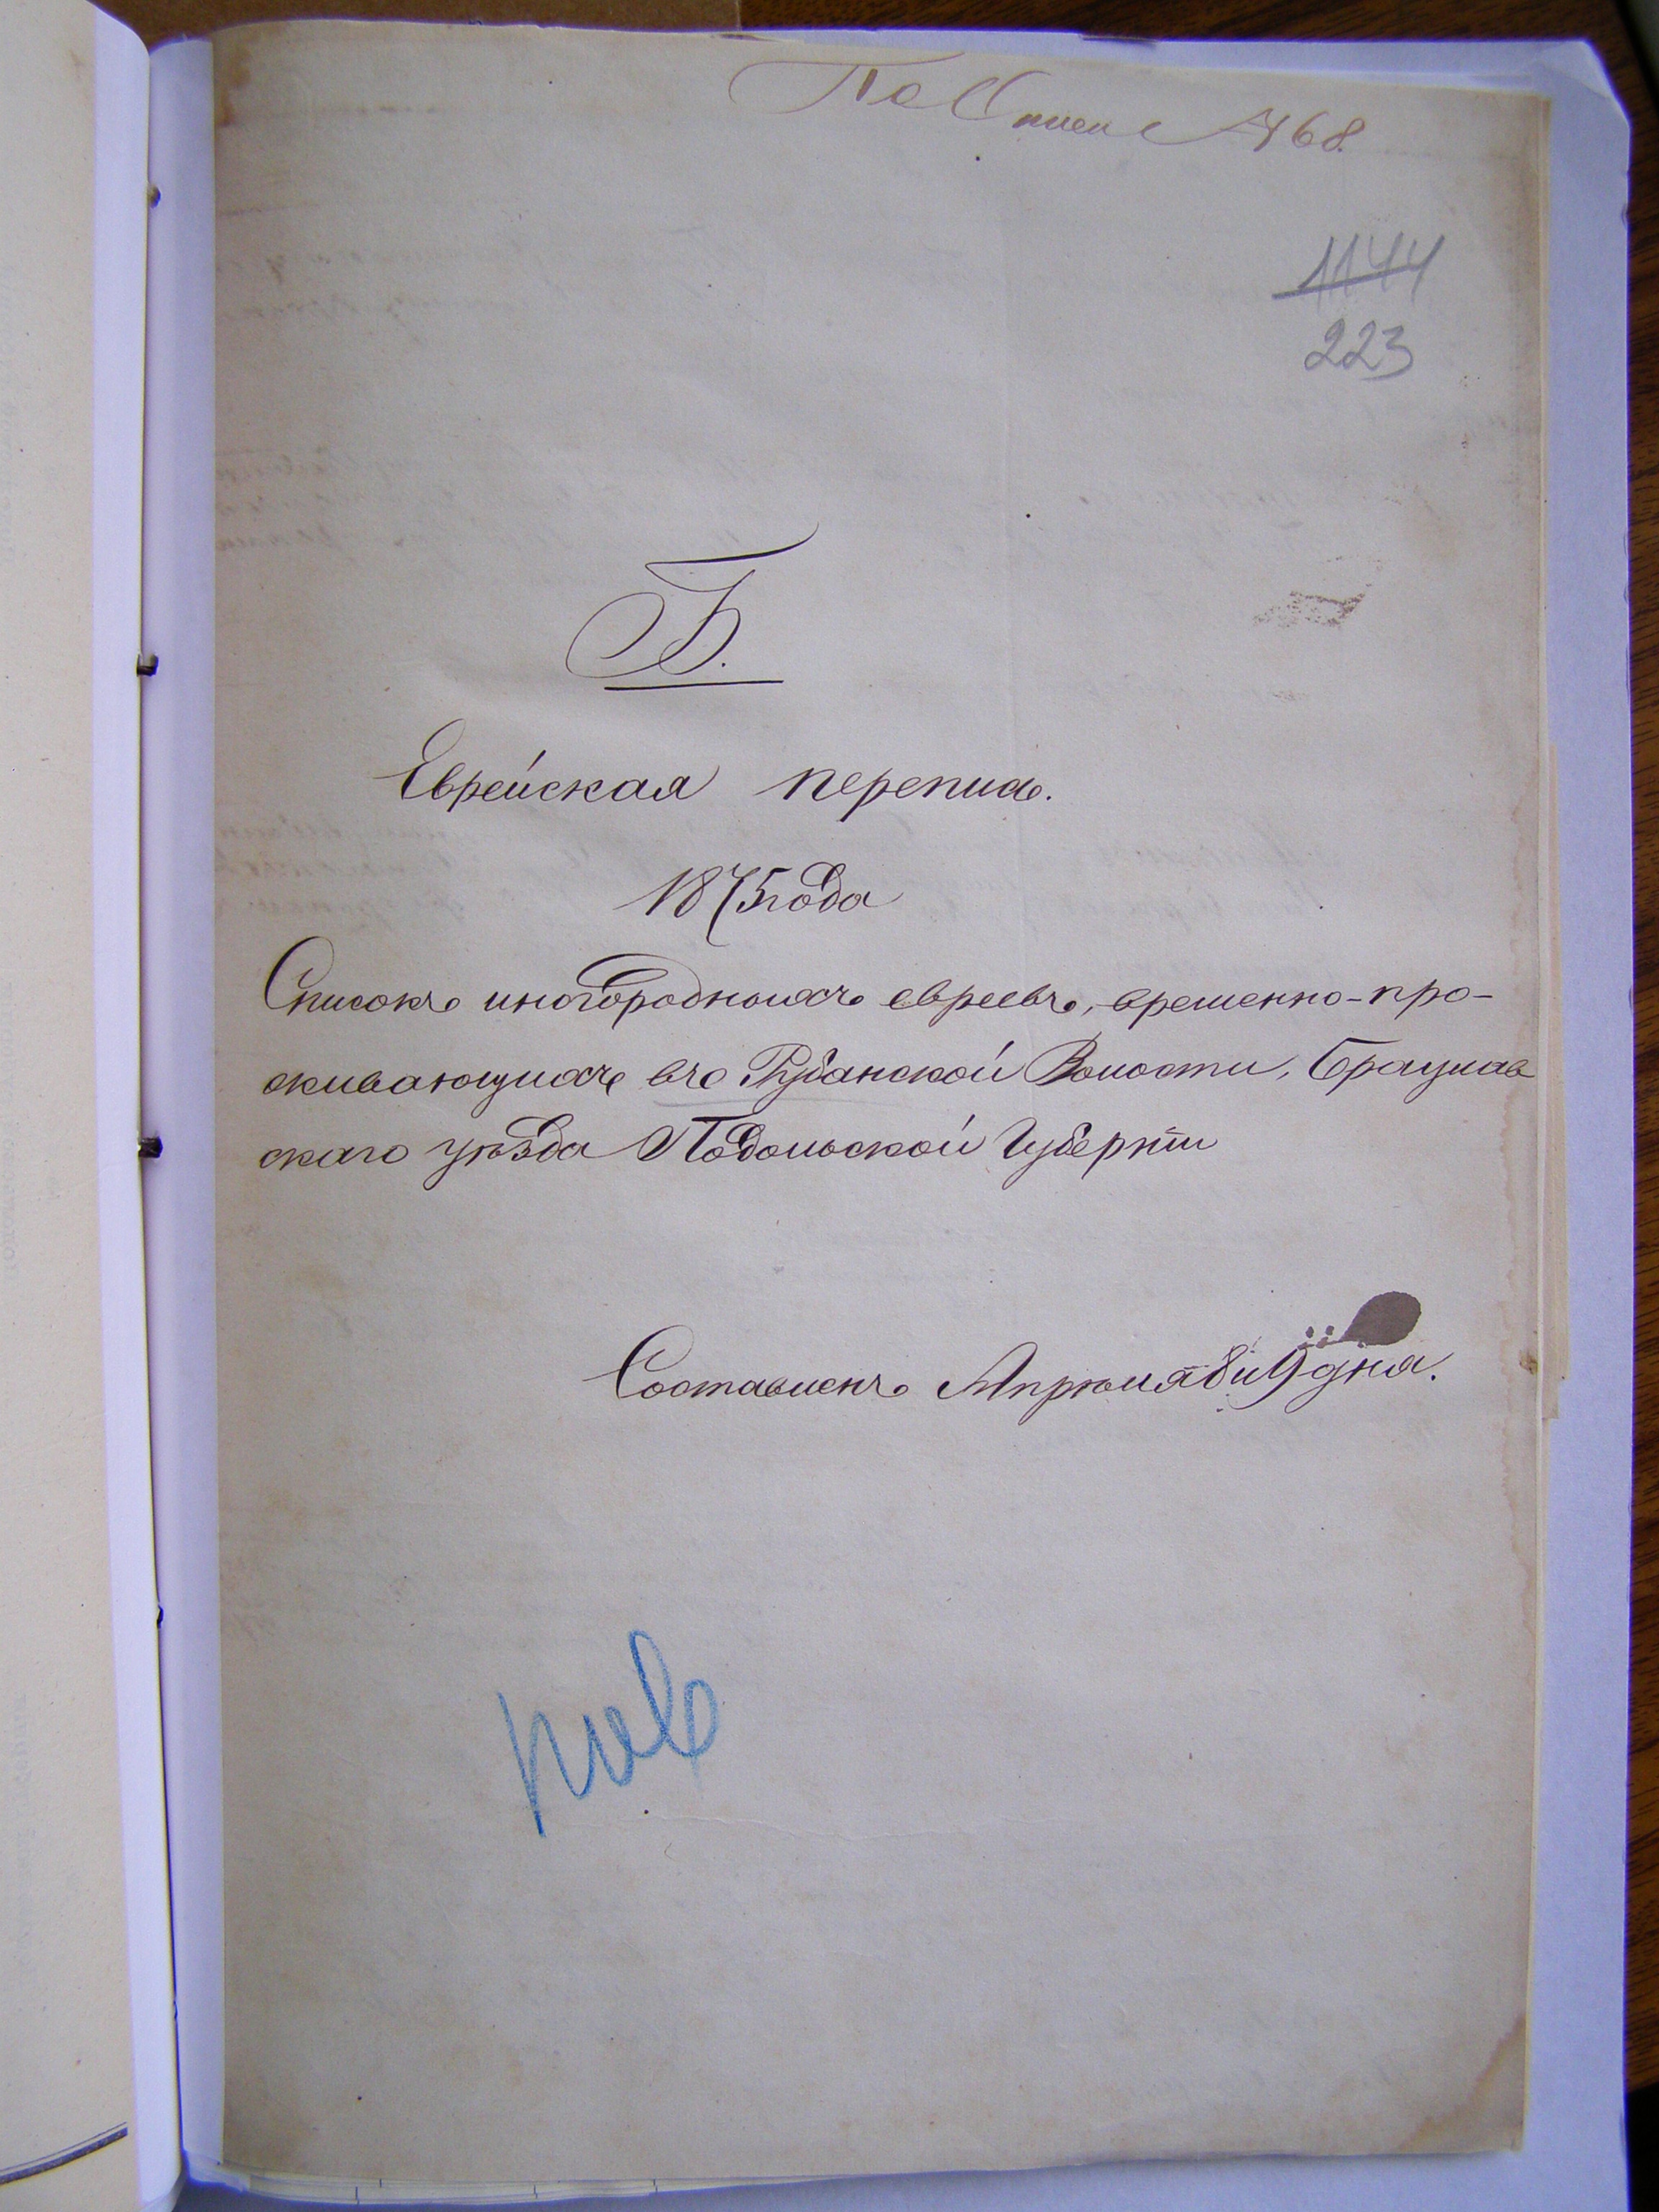 По Описи № 68.
1144
223
Б.
Еврейская перепись.
1875 года
Списокъ иногородныхъ евреевъ, временно-про-
живающихъ въ Рубанской Волости, Брацлав
скаго уѣзда Подольской Губерніи
Составленъ Апрѣля 8 и 9 дня.